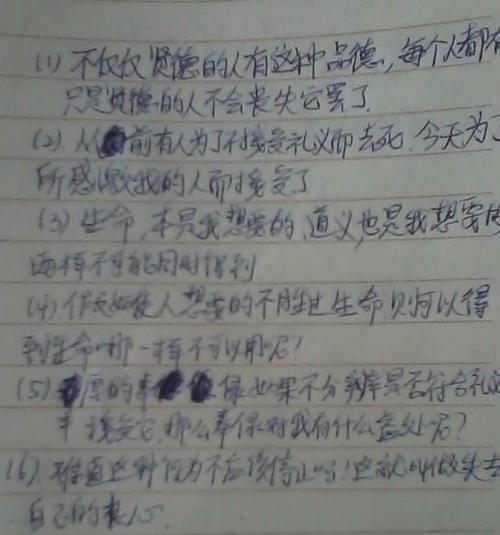 (1) 不仅仅贤德的人有这种品德,每个人都有
只是贤德的人不会丧失它罢了.
(2). 从前有人为了不接受礼义而去死.今天为了
所感激我的人而接受了
(3) 生命,本是我想要的,道义,也是我想要的
两样不可能同时得到
(4) 假如使人想要的不胜过生命则可以得
到生命哪一样不可以用呢?
(5) 厚的奉 禄如果不分辨是否符合礼义
接受它,那么奉禄对我有什么益处呢?
(6). 难道这种行为不应该停止吗!这就叫做失去
自己的良心.